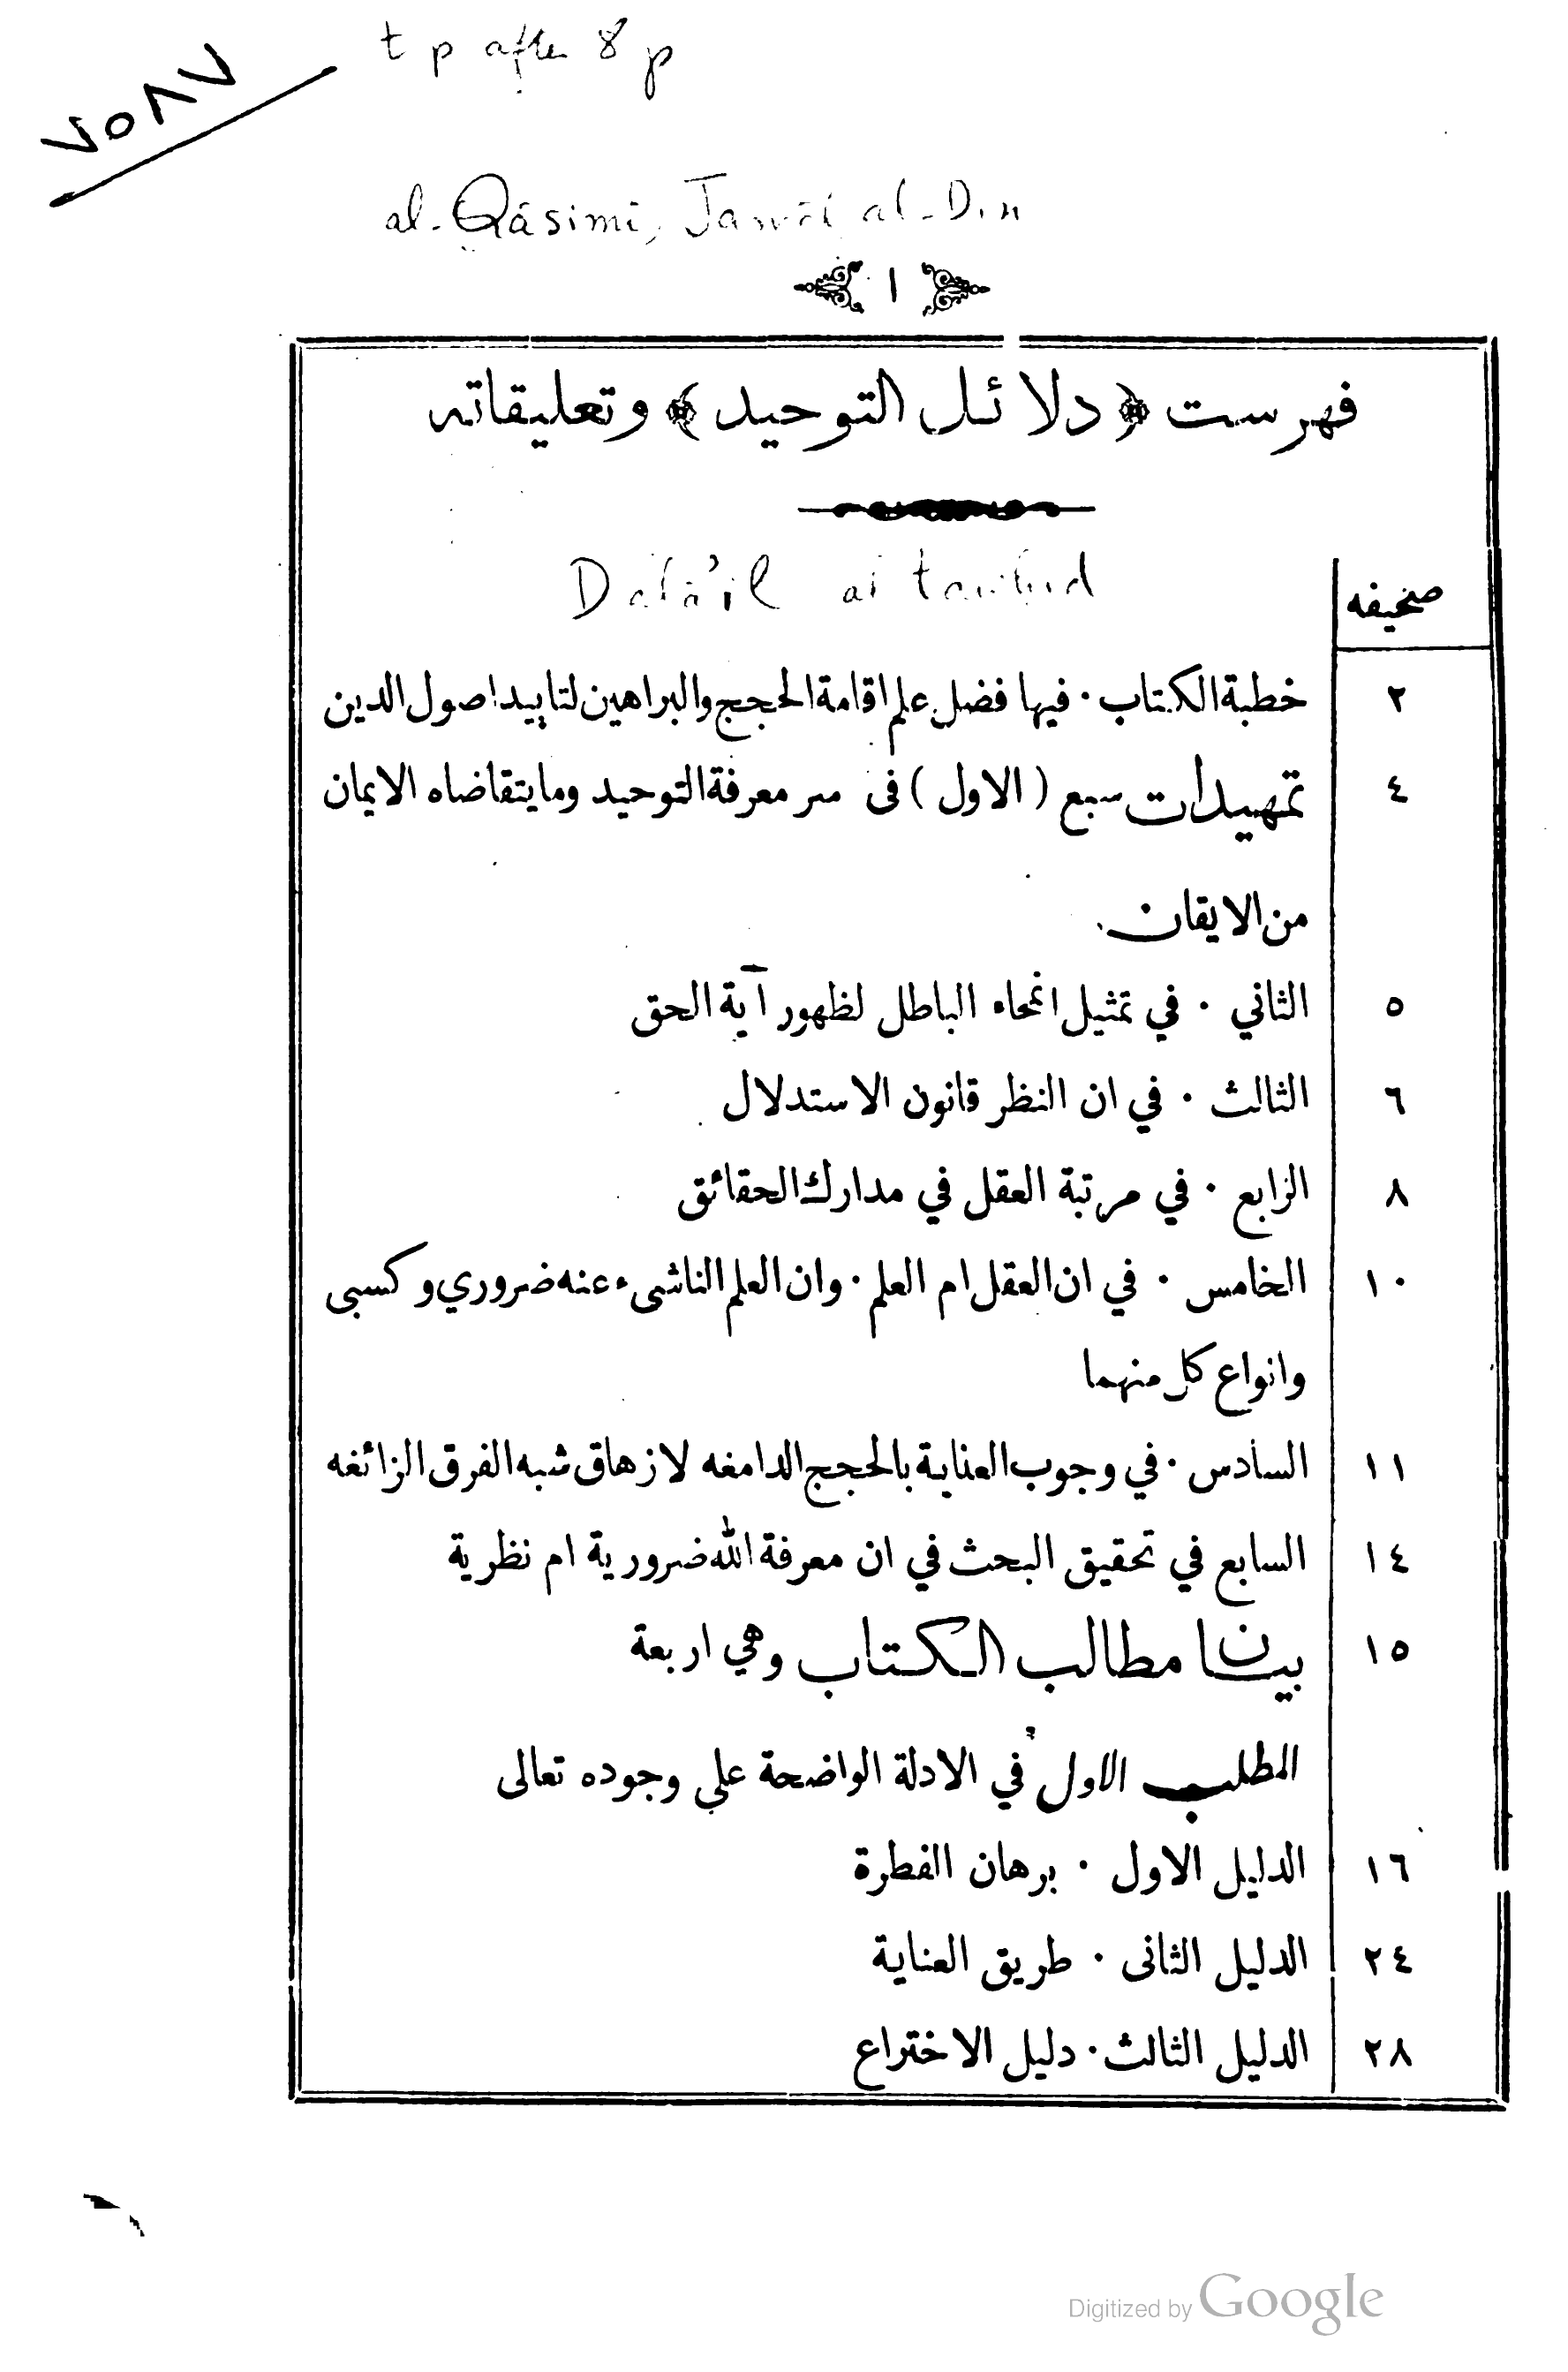 t p after 8 p
٧٥٨٧
al-Qāsimī, Jamāl al-Dīn
١
فهرست ﴿ دلائل التوحيد ﴾ وتعليقاته
Dalā'il al tawḥīd
صحيفه
٢ خطبة الكتاب · فيها فضل علم اقامة الحجج والبراهين لتاييد اصول الدين
٤ تمهيدات سبع ( الاول ) فى سر معرفة التوحيد وما يتقاضاه الايمان
من الايقان
٥ الثاني · في تمثيل انمحاء الباطل لظهور آية الحق
٦ الثالث · في ان النظر قانون الاستدلال
٨ الرابع · في مرتبة العقل في مدارك الحقائق
١٠ الخامس · في ان العقل ام العلم · وان العلم الناشىء عنه ضروري وكسبى
وانواع كل منهما
١١ السادس · في وجوب العناية بالحجج الدامغه لازهاق شبه الفرق الزائغه
١٤ السابع في تحقيق البحث في ان معرفة الله ضرورية ام نظرية
١٥ بيان مطالب الكتاب وهي اربعة
المطلب الاول في الادلة الواضحة على وجوده تعالى
١٦ الدليل الاول · برهان الفطرة
٢٤ الدليل الثانى · طريق العناية
٢٨ الدليل الثالث · دليل الاختراع
Digitized by Google